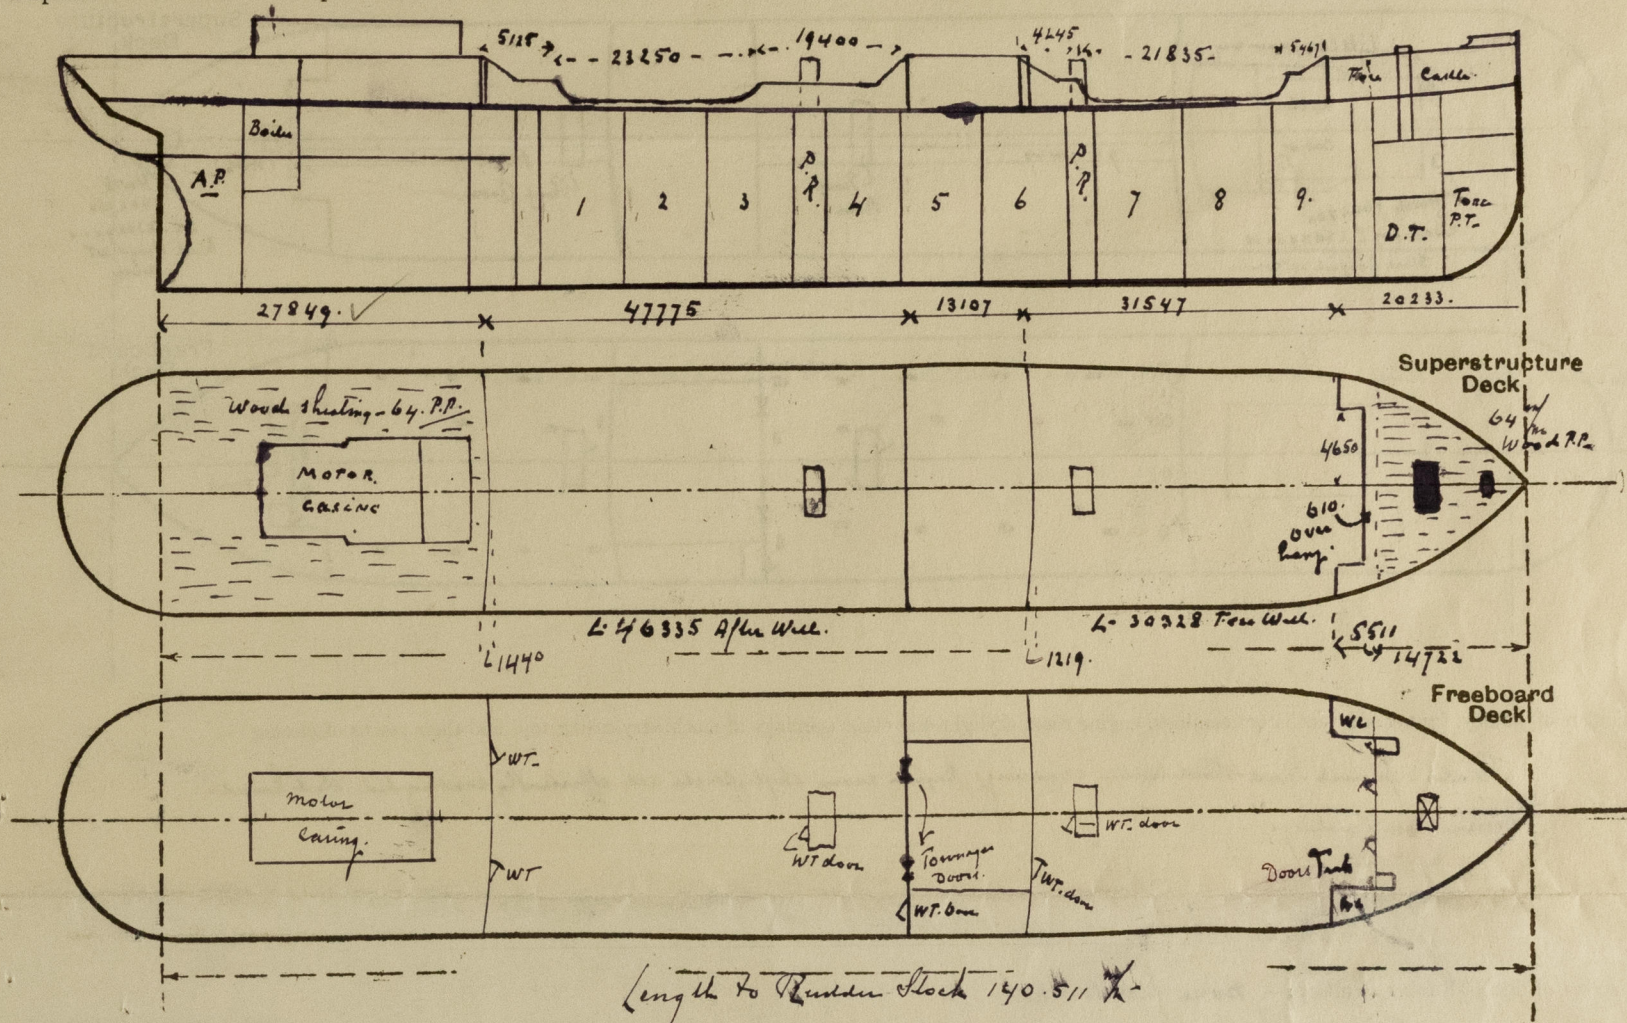 5125
23250
19400
4245
21835
5467
Fore Castle
Boiler
A.P.
1
2
3
P.R.
4
5
6
P.R.
7
8
9.
D.T.
Fore P.T.
27849.
47775
13107
31547
20233.
Superstructure
Deck
Wood sheating - 64. P.P.
64 m/m
Wood P.P.
MOTOR.
CASING
4650
610.
over
hang.
L- 46335 After Well.
L- 30328 Fore Well.
1440
1219.
5511
14722
Freeboard
Deck
WC
WT
WT
Motor
Casing.
WT door
WT. door
Tonnage
Doors.
WT. door
WT. door
Doors
WC
Length to Rudder Stock 140.511 m/m